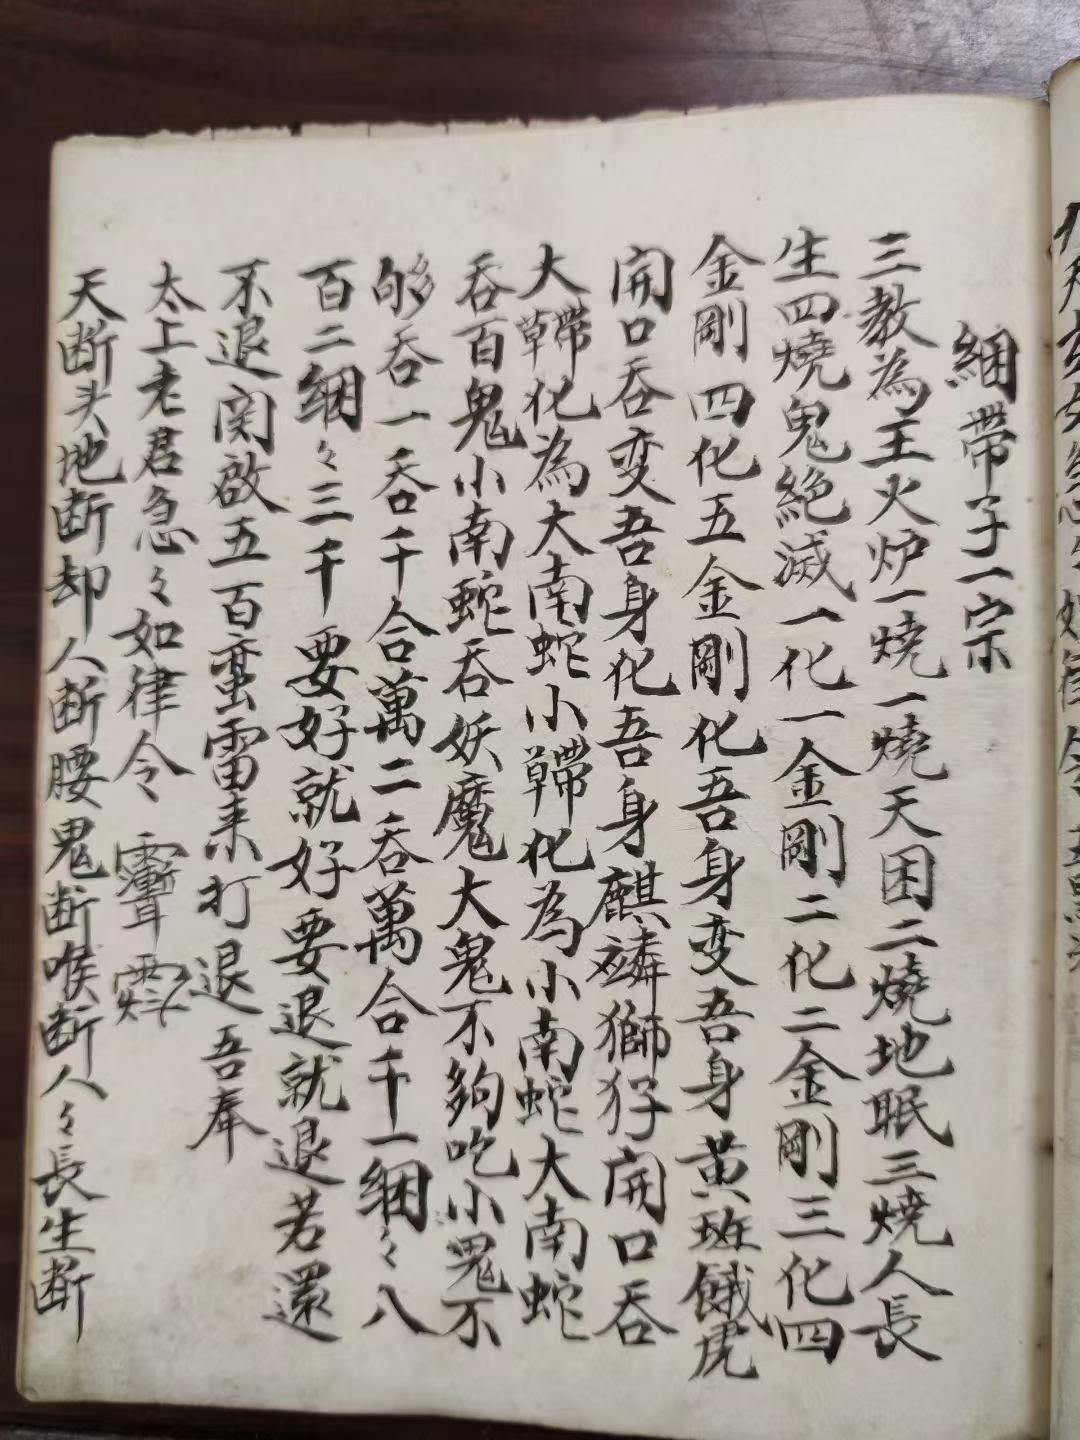 綑帶子一宗
三教為王火炉一燒一燒天困二燒地眠三燒人長
生四燒鬼絕滅一化一金剛二化二金剛三化四
金剛四化五金剛化吾身变吾身黄班餓虎
開口吞变吾身化吾身麒麟獅㺭開口吞
大鞸化為大南蛇小鞸化為小南蛇大南蛇
吞百鬼小南蛇吞妖魔大鬼不夠吃小鬼不
够吞一吞千合萬二吞萬合千一綑々八
百二綑々三千要好就好要退就退若還
不退闵啟五百蛮雷来打退吾奉
太上老君急々如律令
天断头地断却人断腰鬼断喉断人々長生断